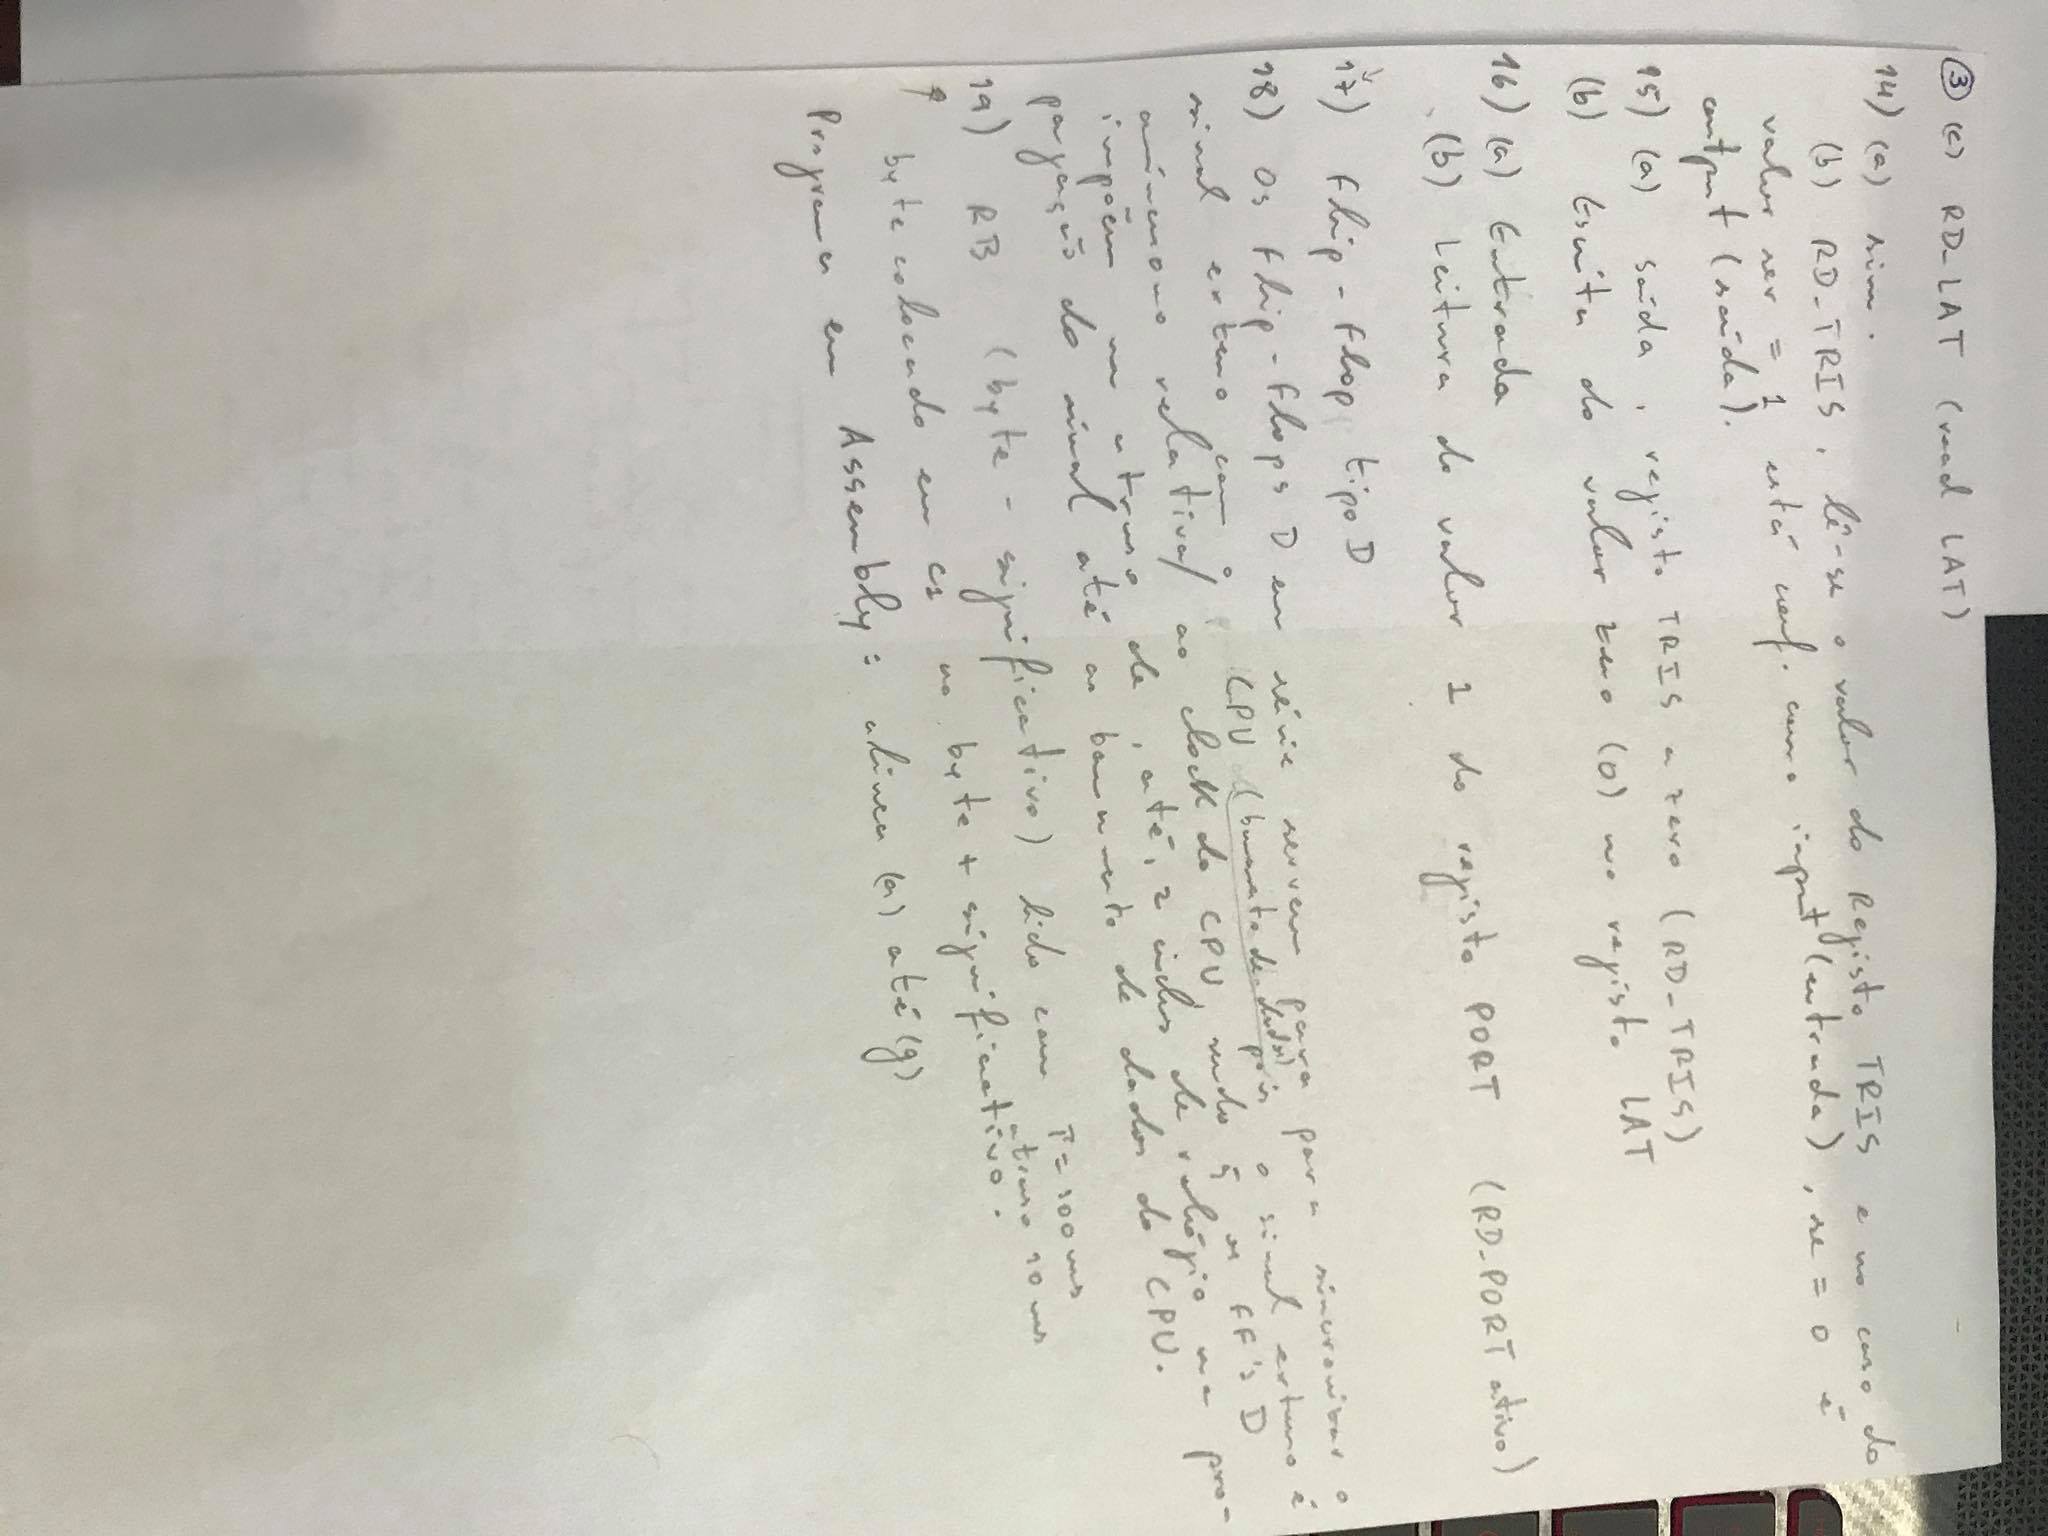 ③ (c) RD_LAT (read LAT)
14) (a) sim.
(b) RD_TRIS, lê-se o valor do Registo TRIS e no caso do
valor ser = 1 está conf. como input (entrada), se = 0 é
output (saída).
15) (a) Saída, registo TRIS a zero (RD_TRIS)
(b) Escrita do valor zero (0) no registo LAT
16) (a) Entrada
(b) Leitura do valor 1 do registo PORT (RD_PORT ativo)
17) Flip-Flop tipo D
18) Os Flip-Flops D em série servem para para sincronizar o
sinal externo com o CPU (barramento de dados) pois o sinal externo é
assíncrono relativa/ ao clock do CPU, sendo os FF's D
impõem um atraso de, até, 2 ciclos de relógio na pro-
pagação do sinal até ao barramento de dados do CPU.
19) RB (byte - significativo) lido com T = 100 ms
atraso 10 ms
byte colocado em no byte + significativo.
Programa em Assembly: alínea (a) até (g)